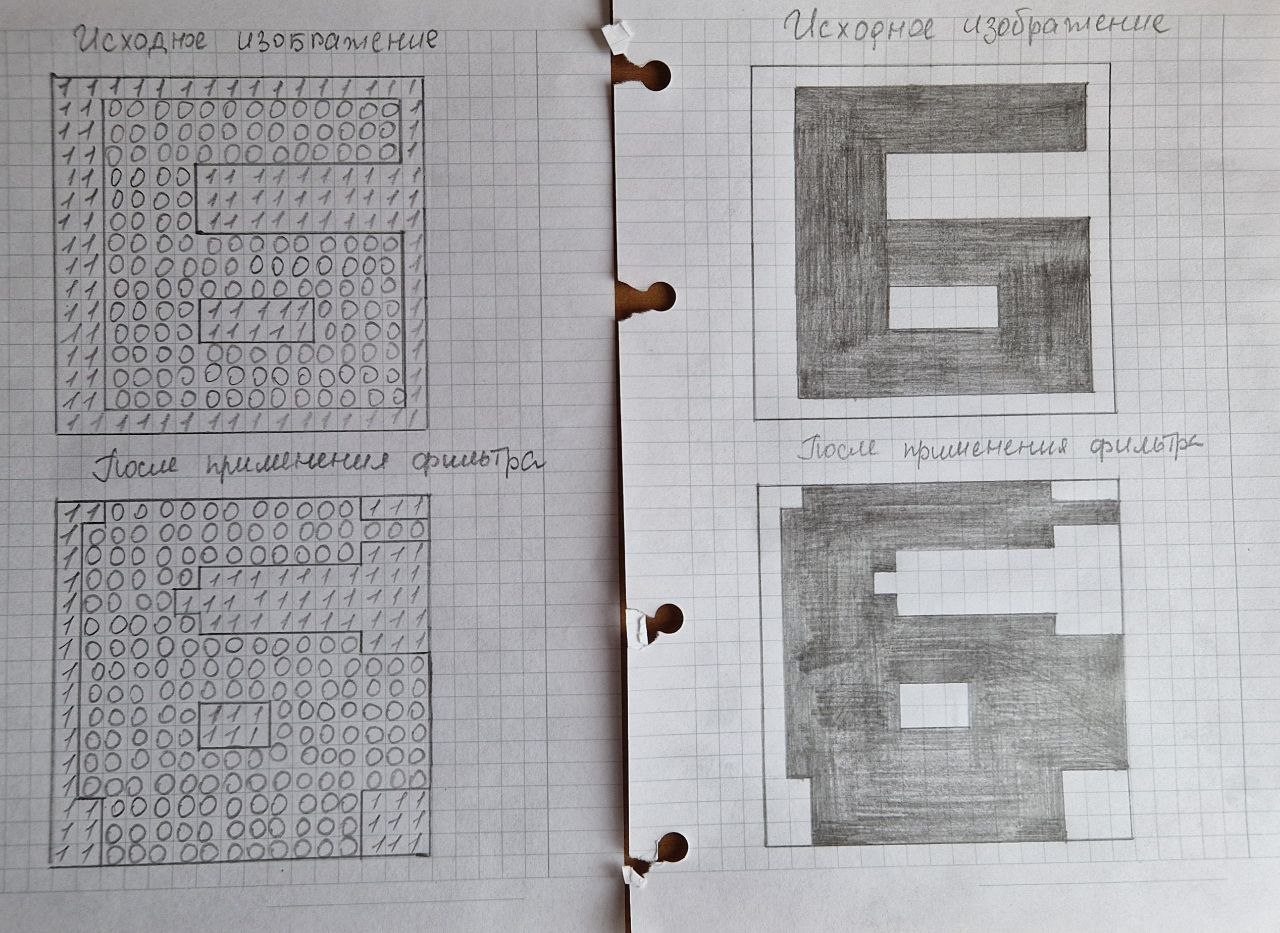 Исходное изображение
1 1 1 1 1 1 1 1 1 1 1 1 1 1 1 1
1 1 0 0 0 0 0 0 0 0 0 0 0 0 0 1
1 1 0 0 0 0 0 0 0 0 0 0 0 0 0 1
1 1 0 0 0 0 0 0 0 0 0 0 0 0 0 1
1 1 0 0 0 0 1 1 1 1 1 1 1 1 1 1
1 1 0 0 0 0 1 1 1 1 1 1 1 1 1 1
1 1 0 0 0 0 1 1 1 1 1 1 1 1 1 1
1 1 0 0 0 0 0 0 0 0 0 0 0 0 0 1
1 1 0 0 0 0 0 0 0 0 0 0 0 0 0 1
1 1 0 0 0 0 0 0 0 0 0 0 0 0 0 1
1 1 0 0 0 0 1 1 1 1 1 0 0 0 0 1
1 1 0 0 0 0 1 1 1 1 1 0 0 0 0 1
1 1 0 0 0 0 0 0 0 0 0 0 0 0 0 1
1 1 0 0 0 0 0 0 0 0 0 0 0 0 0 1
1 1 0 0 0 0 0 0 0 0 0 0 0 0 0 1
1 1 1 1 1 1 1 1 1 1 1 1 1 1 1 1
После применения фильтра
1 1 0 0 0 0 0 0 0 0 0 0 0 1 1 1
1 0 0 0 0 0 0 0 0 0 0 0 0 0 0 0
1 0 0 0 0 0 0 0 0 0 0 0 0 1 1 1
1 0 0 0 0 0 1 1 1 1 1 1 1 1 1 1
1 0 0 0 0 1 1 1 1 1 1 1 1 1 1 1
1 0 0 0 0 0 1 1 1 1 1 1 1 1 1 1
1 0 0 0 0 0 0 0 0 0 0 0 0 1 1 1
1 0 0 0 0 0 0 0 0 0 0 0 0 0 0 0
1 0 0 0 0 0 0 0 0 0 0 0 0 0 0 0
1 0 0 0 0 0 1 1 1 0 0 0 0 0 0 0
1 0 0 0 0 0 1 1 1 0 0 0 0 0 0 0
1 0 0 0 0 0 0 0 0 0 0 0 0 0 0 0
1 0 0 0 0 0 0 0 0 0 0 0 0 0 0 0
1 1 0 0 0 0 0 0 0 0 0 0 0 1 1 1
1 1 0 0 0 0 0 0 0 0 0 0 0 1 1 1
1 1 0 0 0 0 0 0 0 0 0 0 0 1 1 1
Исходное изображение
После применения фильтра